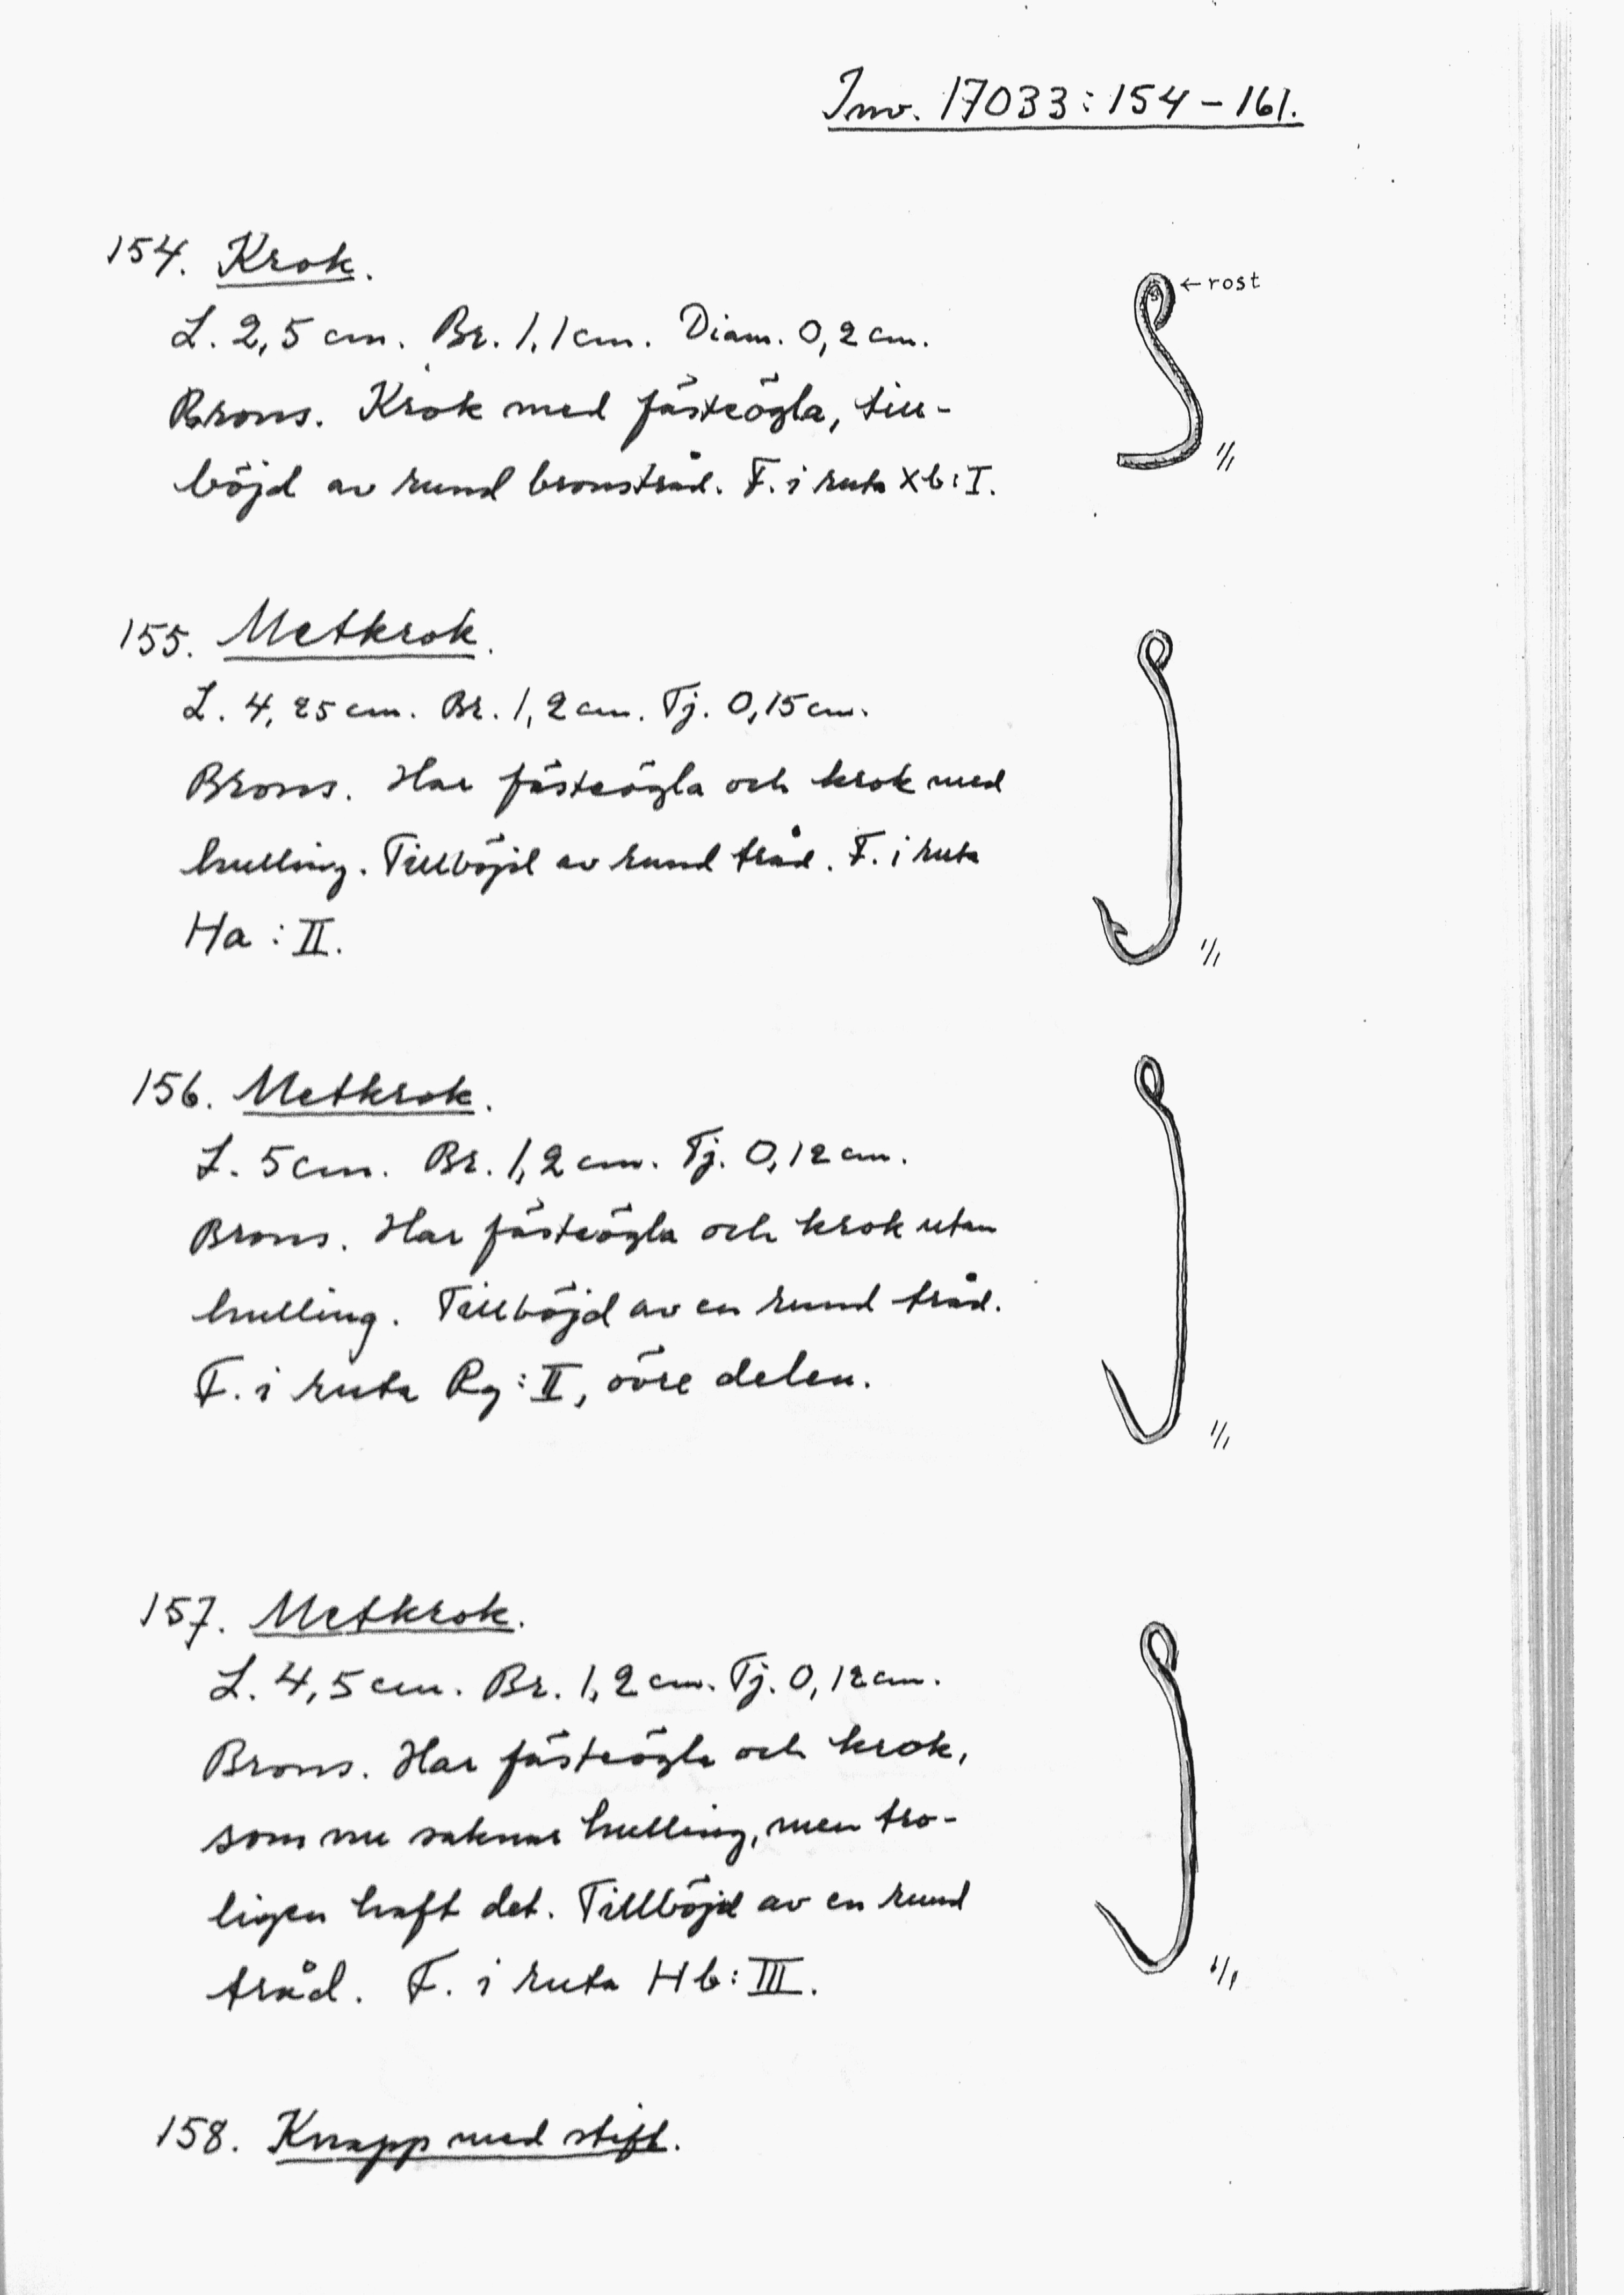 Inv. 17033:154-161.
154. Krok.
L. 2,5 cm. Br. 1,1 cm. Diam. 0,2 cm.
Brons. Krok med fästeögla, till-
böjd av rund bronstråd. F. i ruta Xb:I.
← rost
1/1
155. Metkrok.
L. 4,25 cm. Br. 1,2 cm. Tj. 0,15 cm.
Brons. Har fästeögla och krok med
hulling. Tillböjd av rund tråd. F. i ruta
Ha : II.
1/1
156. Metkrok.
L. 5 cm. Br. 1,2 cm. Tj. 0,12 cm.
Brons. Har fästeögla och krok utan
hulling. Tillböjd av en rund tråd.
F. i ruta Rg:II, övre delen.
1/1
157. Metkrok.
L. 4,5 cm. Br. 1,2 cm. Tj. 0,12 cm.
Brons. Har fästeögla och krok,
som nu saknar hulling, men tro-
ligen haft det. Tillböjd av en rund
tråd. F. i ruta Hb:III.
1/1
158. Knapp med stift.